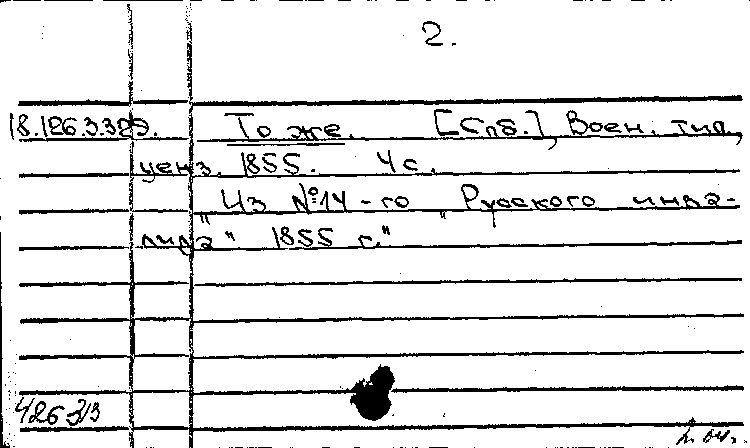 2.
18.126.3.329. То же. [Спб.], Воен. тип.,
ценз. 1855. 4 с.
„Из №14-го „Русского инва-
лида“ 1855 г.“
426 313